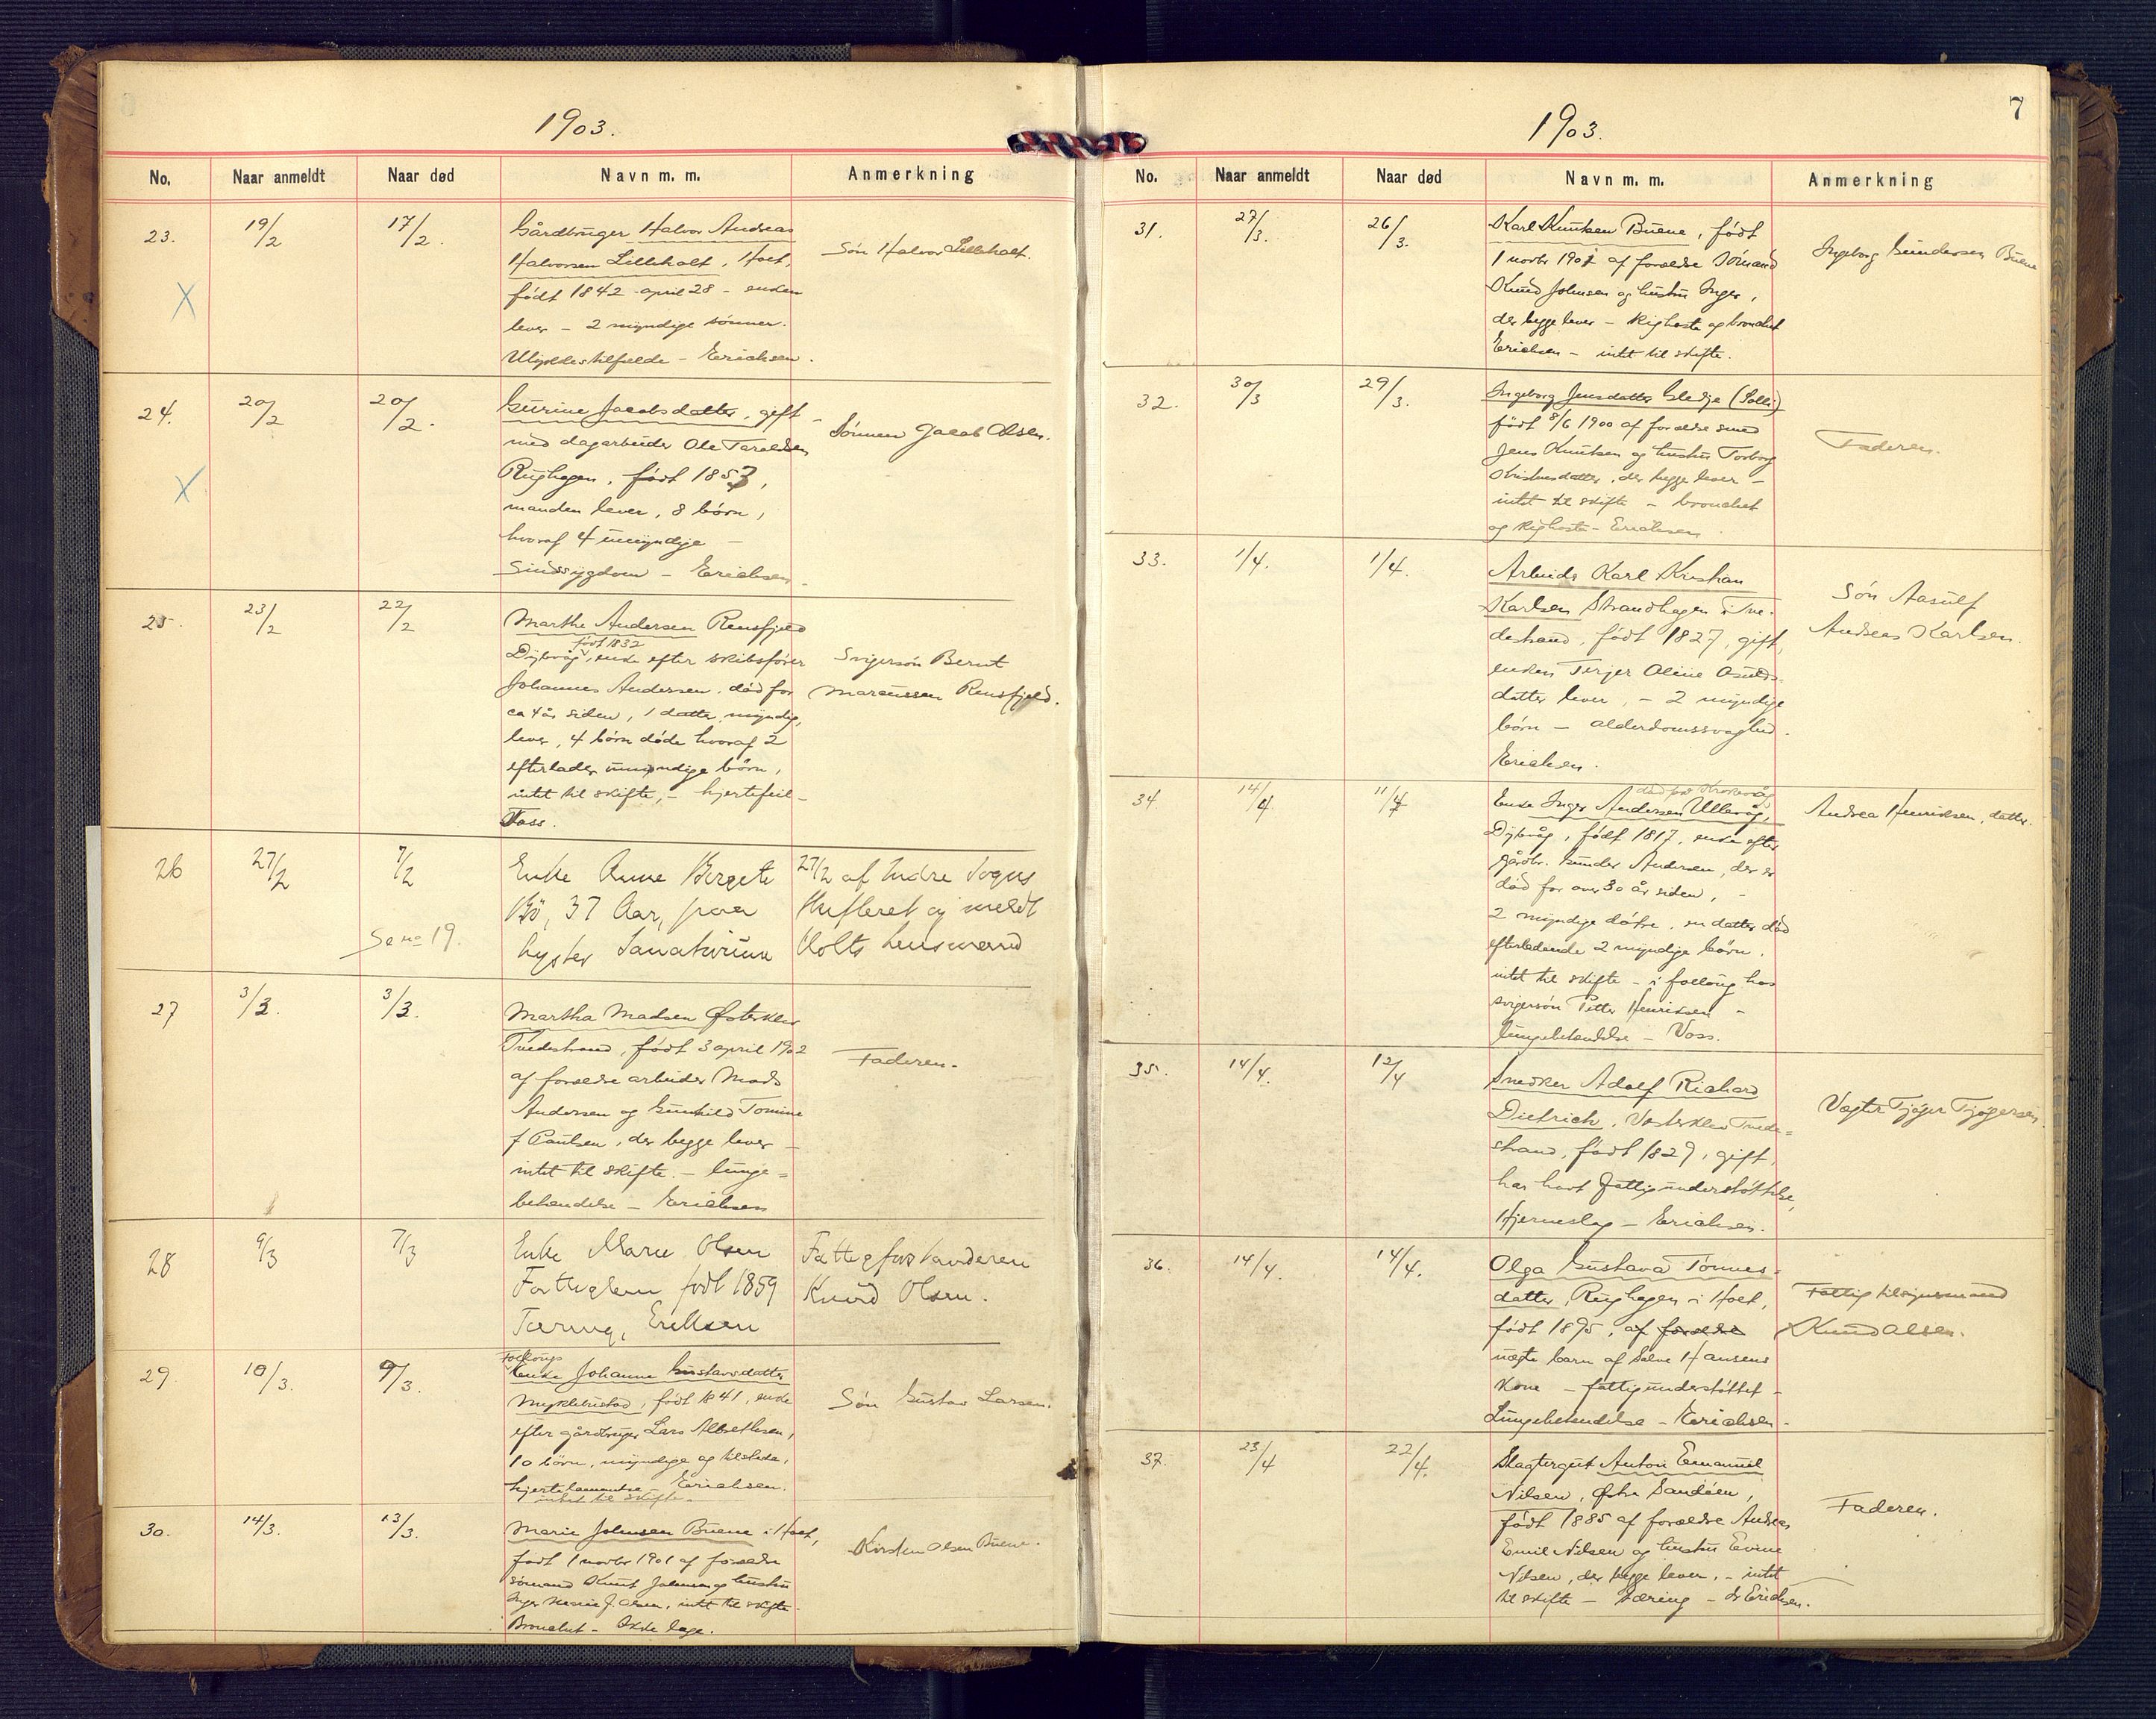 1903.
No. Naar anmeldt Naar død Navn m. m. Anmerkning
23. 19/2 17/2. Gårdbruger Halvor Andreas
Halvorsen Lilleholt, Holt,
født 1842 april 28 - enken
lever - 2 myndige sønner.
Ulykkestilfælde - Erichsen.
Søn Halvor Lilleholt.
24. 20/2 20/2. Gurine Jacobsdatter, gift
med dagarbeider Ole Taraldsen
Rughagen, født 1853,
manden lever, 8 børn,
hvoraf 4 umyndige -
Sindssygdom - Erichsen.
Sønnen Jacob Olsen.
25. 23/2 22/2 Marthe Andersen Rensfjeld
født 1832
Dybvåg, enke efter skibsfører
Johannes Andersen, død for
ca 4 år siden, 1 datter, myndig,
lever, 4 børn døde hvoraf 2
efterlader umyndige børn,
intet til skifte, - hjertefeil -
Voss.
Svigersøn Bernt
Marcussen Rensfjeld.
26 27/2 7/2 Enke Anne Bergete
Bö, 37 Aar, paa
Lyster Sanatorium
Se no 19.
27/2 af Indre Sogns
Skifteret og meldt
Holts lensmand
27 3/3. 3/3. Martha Madsen Østerklev
Tvedestrand, født 3 april 1902
af forældre arbeider Mads
Andersen og Gunhild Tomine
f Paulsen, der begge lever -
intet til skifte. - lunge=
betændelse - Erichsen
Faderen.
28 9/3 7/3 Enke Marie Olsen
Fattiglem født 1859
Tæring, Eriksen
Fattigforstanderen
Knud Olsen.
29 10/3. 9/3. Follougs
Enke Johanne Gustavsdatter
Myklebustad, født 1841, enke
efter gårdbruger Lars Albrethsen,
10 børn, myndige og tilstede,
hjertelammelse - Erichsen.
intet til skifte.
Søn Gustav Larsen.
30. 14/3. 13/3. Marie Johnsen Buene i Holt,
født 1 novbr 1901 af forældre
sømand Knut Johnsen og hustru
Inger Marie J. Olsen, intet til skifte -
Bronchit - Ikke læge.
Kirsten Olsen Buene.
7
1903.
No. Naar anmeldt Naar død Navn m. m. Anmerkning
31. 27/3. 26/3. Karl Knutsen Buene, født
1 novbr 1901 af forældre sømand
Knud Johnsen og hustru Inger,
der begge lever - kighoste og bronchit
Erichsen - intet til skifte.
Ingeborg Gundersen Buene
32. 30/3 29/3. Ingeborg Jensdatter Gledje (Solli)
født 8/6 1900 af forældre smed
Jens Knutsen og hustru Torborg
Kristensdatter, der begge lever -
intet til skifte - bronchit
og kighoste - Erichsen.
Faderen.
33. 1/4. 1/4. Arbeider Karl Kristian
Karlsen Strandhagen i Tve-
destrand, født 1827, gift,
enken Terjer Oline Osulds-
datter lever, - 2 myndige
børn - alderdomssvaghed.
Erichsen.
Søn Aasulf
Andreas Karlsen.
34 14/4 11/4 Enke Inger Andersen Ullevåg,
Dybvåg, født 1817, enke efter
gårdbr. Gunder Andersen, der er
død for over 30 år siden, -
2 myndige døtre, en datter død
efterladende 2 myndige børn.
intet til skifte - i folloug hos
svigersøn Petter Henriksen -
lungebetændelse - Voss.
Andrea Henriksen, datter.
35. 14/4. 12/4 Snedker Adolf Richard
Dietrich, Vesterklev Tvede=
strand, født 1829, gift,
har havt fattigunderstøttelse,
Hjerneslag - Erichsen.
Vægter Tjøger Tjøgersen
36. 14/4. 14/4. Olga Gustava Tønnes-
datter, Rughagen i Holt,
født 1895, af forældre
uægte barn af Salve Hansens
Kone - fattigunderstøttet -
Lungebetændelse - Erichsen.
Fattigtilsynsmand
Knud Olsen.
37. 23/4 22/4. Slagtergut Anton Emanuel
Nilsen, Østre Sandøen,
født 1885 af forældre Andreas
Emil Nilsen og hustru Evine
Nilsen, der begge lever, - intet
til skifte - Tæring - Dr Erichsen.
Faderen.